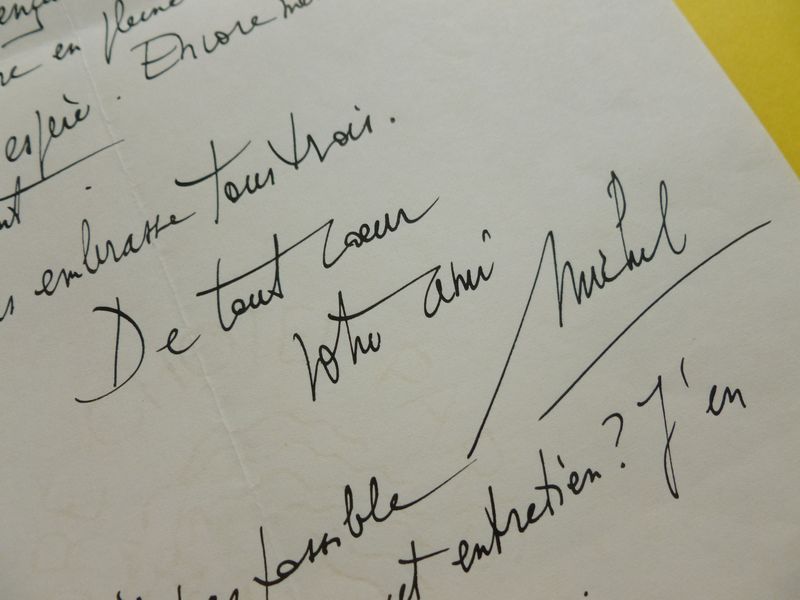 en pleine
espère. Encore
embrasse tous trois.
De tout coeur
votre ami Michel
possible
et entretien? J'en